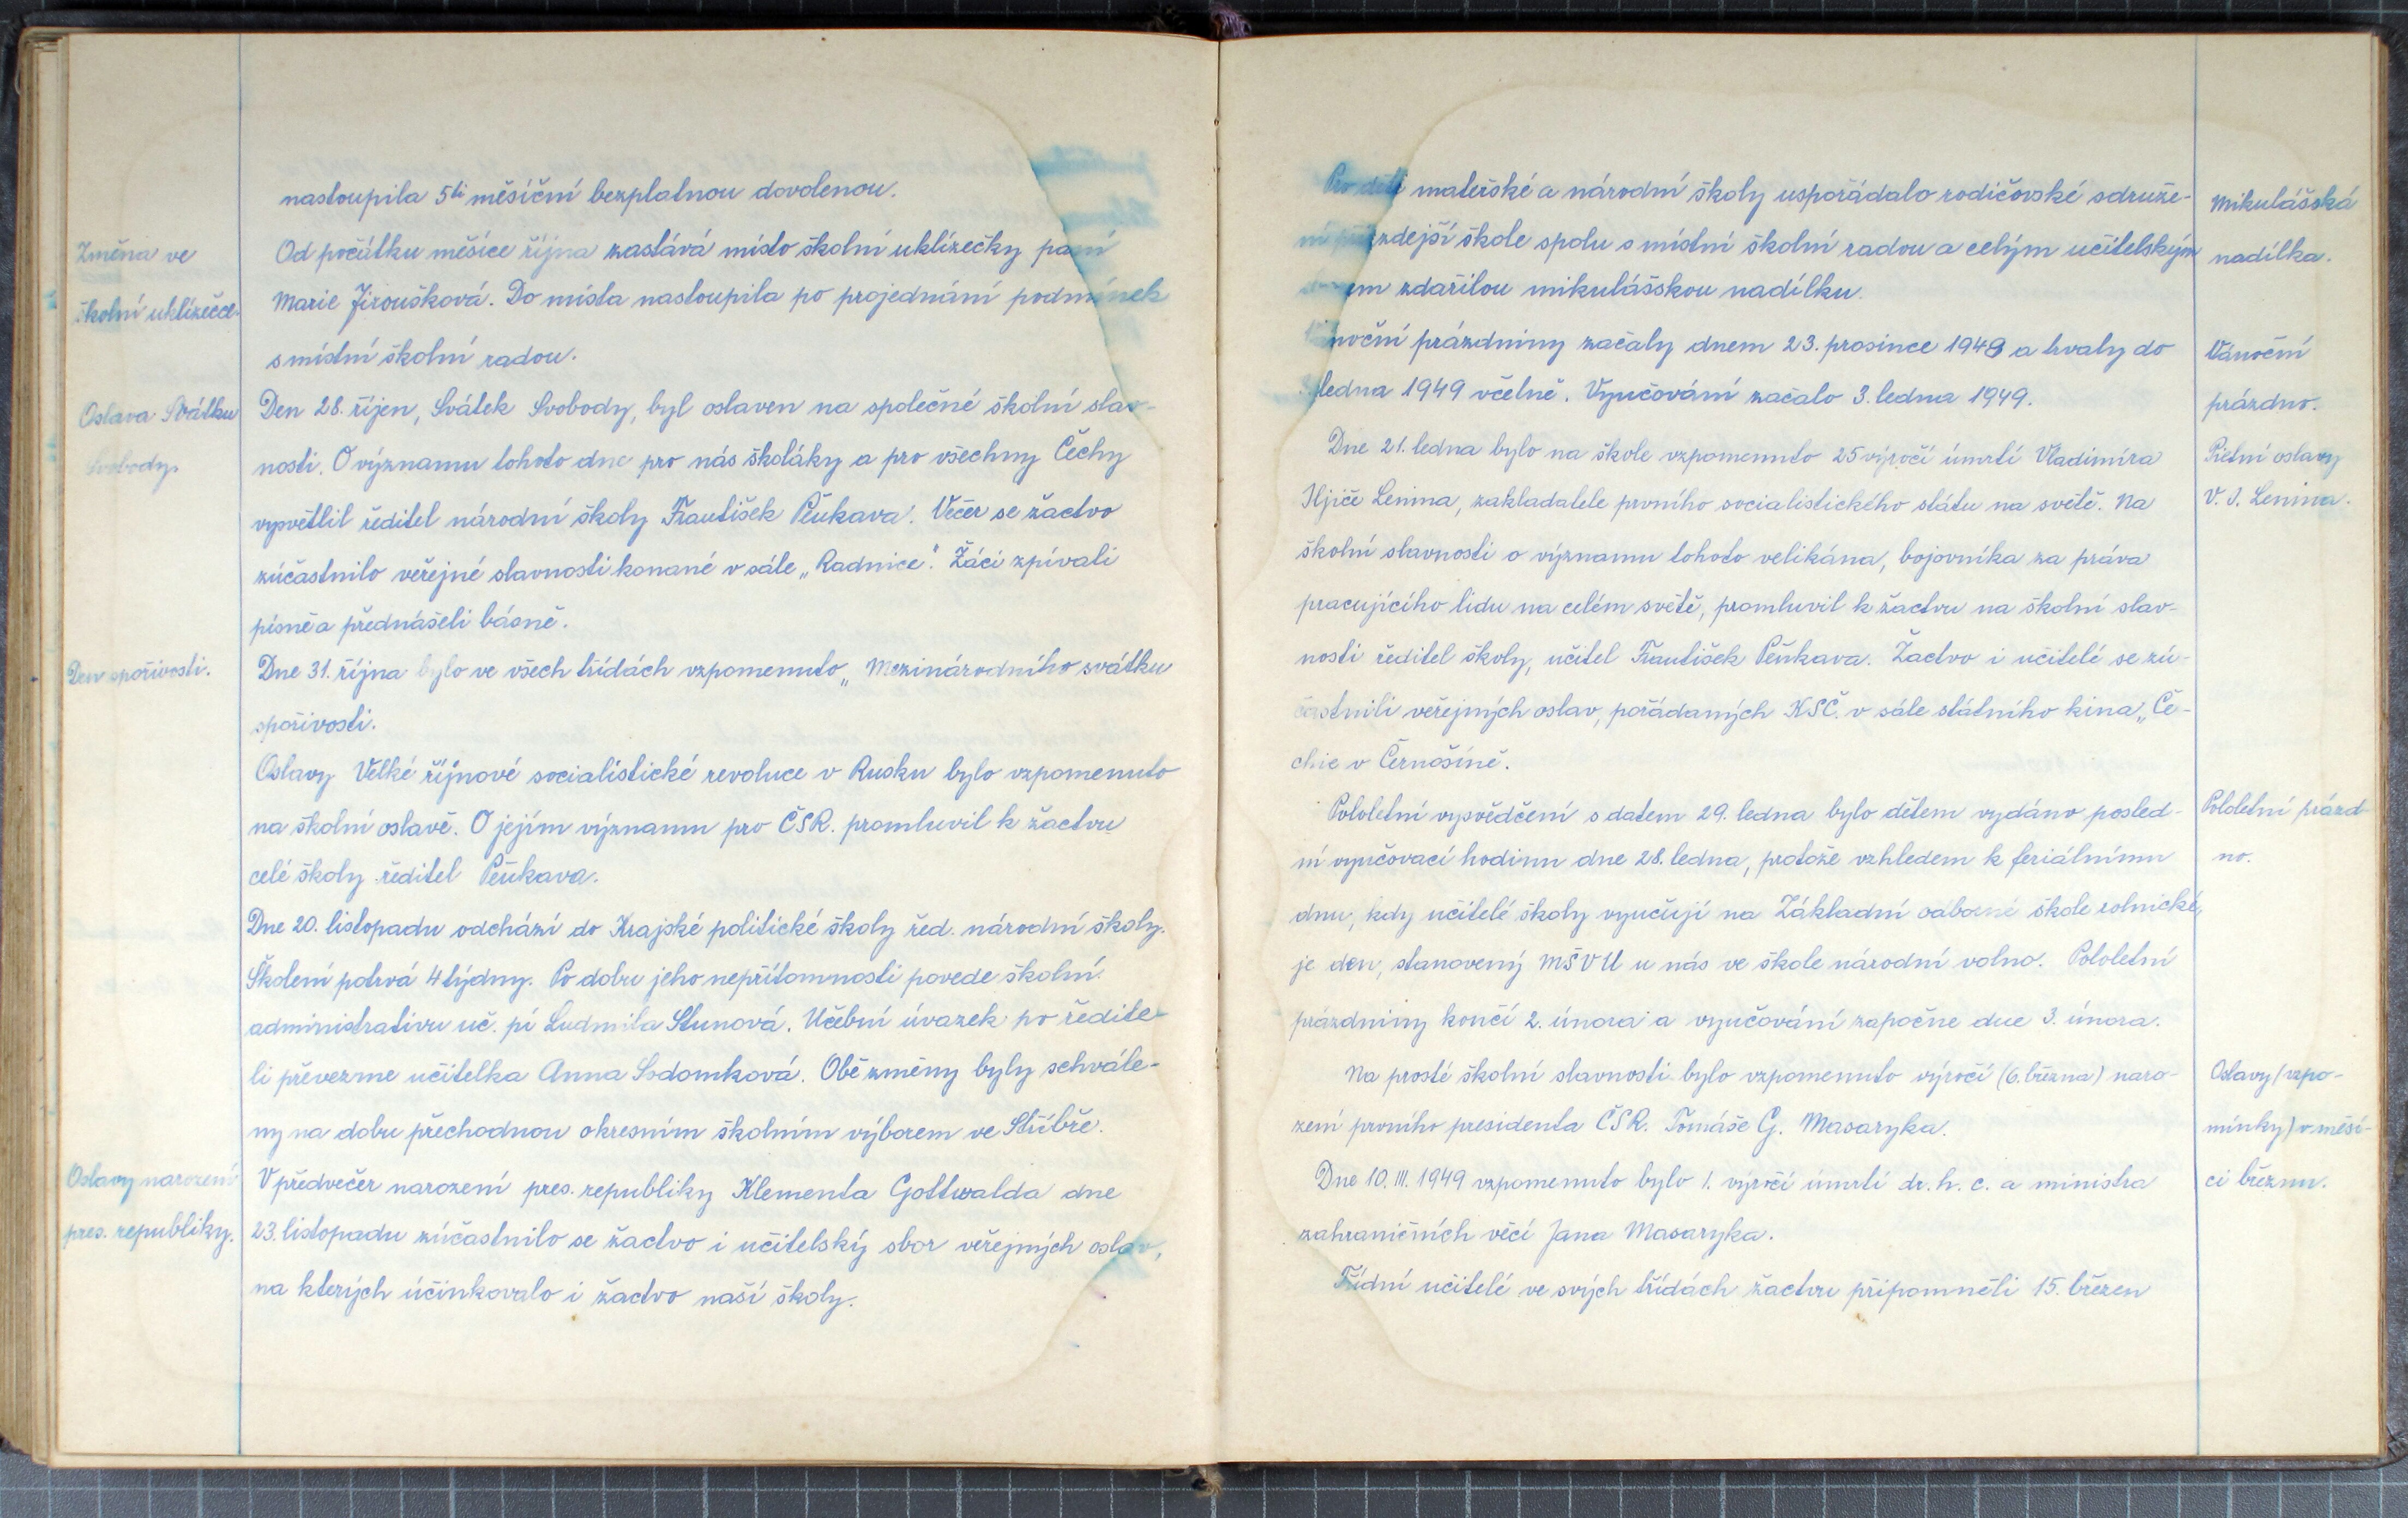 nastoupila 5ti měsíční bezplatnou dovolenou.
Změna ve
školní uklizečce.
Od počátku měsíce října zastává místo školní uklizečky paní
Marie Jiroušková. Do místa nastoupila po projednání podmínek
s místní školní radou.
Oslava Svátku
Svobody.
Den 28. říjen, Svátek Svobody, byl oslaven na společné školní slav-
nosti. O významu tohoto dne pro nás školáky a pro všechny Čechy
vysvětlil ředitel národní školy František Peukava. Večer se žactvo
zúčastnilo veřejné slavnosti konané v sále „Radnice". Žáci zpívali
písně a přednášeli básně.
Den spořivosti.
Dne 31. října bylo ve všech třídách vzpomenuto „Mezinárodního svátku
spořivosti.
Oslavy Velké říjnové socialistické revoluce v Rusku bylo vzpomenuto
na školní oslavě. O jejím významu pro ČSR. promluvil k žactvu
celé školy ředitel Peukava.
Dne 20. listopadu odchází do Krajské politické školy řed. národní školy.
Školení potrvá 4 týdny. Po dobu jeho nepřítomnosti povede školní
administrativu uč. pí Ludmila Stunová. Učební úvazek po řediteli-
li převezme učitelka Anna Sodomková. Obě změny byly schvále-
ny na dobu přechodnou okresním školním výborem ve Stříbře.
Oslavy narození
pres. republiky.
V předvečer narození pres. republiky Klementa Gottwalda dne
23. listopadu zúčastnilo se žactvo i učitelský sbor veřejných oslav,
na kterých účinkovalo i žactvo naší školy.
Pro děti mateřské a národní školy uspořádalo rodičovské sdruže-
ní při zdejší škole spolu s místní školní radou a celým učitelským
zdařilou mikulášskou nadílku.
Mikulášská
nadílka.
Vánoční prázdniny začaly dnem 23. prosince 1948 a trvaly do
ledna 1949 včelně. Vyučování začalo 3. ledna 1949.
Vánoční
prázdno.
Dne 21. ledna bylo na škole vzpomenuto 25 výročí úmrtí Vladimíra
Iljiče Lenina, zakladatele prvního socialistického státu na světě. Na
školní slavnosti o významu tohoto velikána, bojovníka za práva
pracujícího lidu na celém světě, promluvil k žactvu na školní slav-
nosti ředitel školy, učitel František Peukava. Žactvo i učitelé se zú-
častnili veřejných oslav, pořádaných KSČ. v sále státního kina „Če-
chie v Černošíně.
Pietní oslavy
V. I. Lenina.
Pololetní vysvědčení s datem 29. ledna bylo dětem vydáno posled-
ní vyučovací hodinu dne 28. ledna, protože vzhledem k feriálnímu
dnu, kdy učitelé školy vyučují na Základní odborné škole rolnické,
je den, stanovený MŠVU u nás ve škole národní volno. Pololetní
prázdniny končí 2. února a vyučování započne dne 3. února.
Pololetní prázd
no.
Na prosté školní slavnosti bylo vzpomenuto výročí (6. března) naro-
zení prvního presidenta ČSR. Tomáše G. Masaryka.
Dne 10. III. 1949 vzpomenuto bylo 1. výročí úmrtí dr. h. c. a ministra
zahraničních věcí Jana Masaryka.
Třídní učitelé ve svých třídách žactvu připomněli 15. březen
Oslavy (vzpo-
mínky) v měsí-
ci březnu.